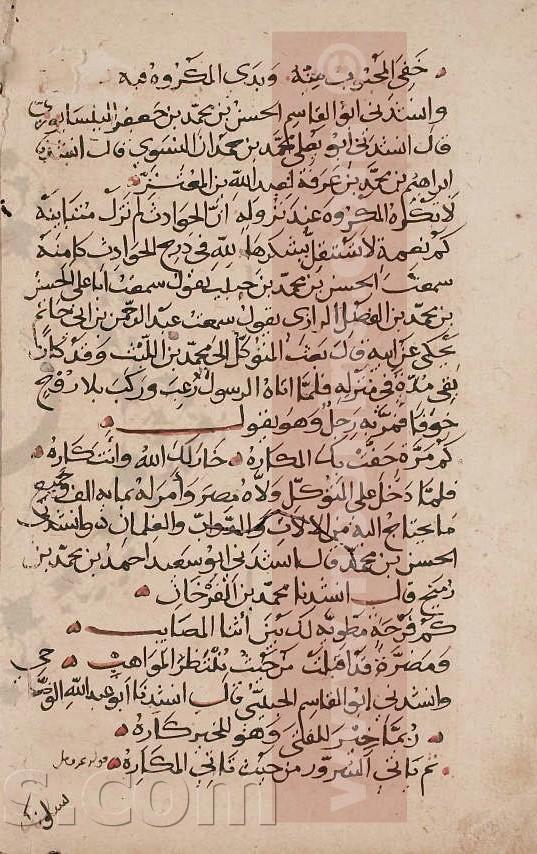 خفي المحبوب منه وبدى المكروه فيه
وانشدني ابو القاسم الحسن بن محمد بن جعفر النيسابوري
قال انشدني ابو يعلى محمد بن حمدان النسوي قال انشدنا
ابراهيم بن محمد بن عرفة لعبد الله بن المعتز
لا تكره المكروه عند نزوله ان الحوادث لم تزل متباينة
كم نعمة لا تستقل بشكرها لله في درج الحوادث كامنة
سمعت الحسن بن محمد بن حبيب يقول سمعت ابا علي الحسن
بن محمد بن الفضل الرازي يقول سمعت عبد الرحمن بن ابي حاتم
يحكي عن ابيه قال بعث المتوكل الى محمد بن الليث وقد كان
بقي مدة في منزله فلما اتاه الرسول رعب وركب بلا روح
خوفا فمر به رجل وهو يقول
كم مرة حفت بك المكاره خار لك الله وانت كاره
فلما دخل على المتوكل ولاه مصر وامر له بماية الف وجميع
ما يحتاج اليه من الالات والدواب والغلمان وانشدني
الحسن بن محمد قال انشدني ابو سعيد احمد بن محمد بن
رميح قال انشدنا محمد بن الفرخان
كم فرحة مطوية لك بين اثنا المصايب
ومضرة قد اقبلت من حيث تنتظر المواهب
وانشدني ابو القاسم الحبيبي قال انشدنا ابو عبد الله الوضاحي
ربما خير للفتى وهو للخير كاره
ثم ياتي السرور من حيث تاتي المكاره قوله عز وجل
s.com